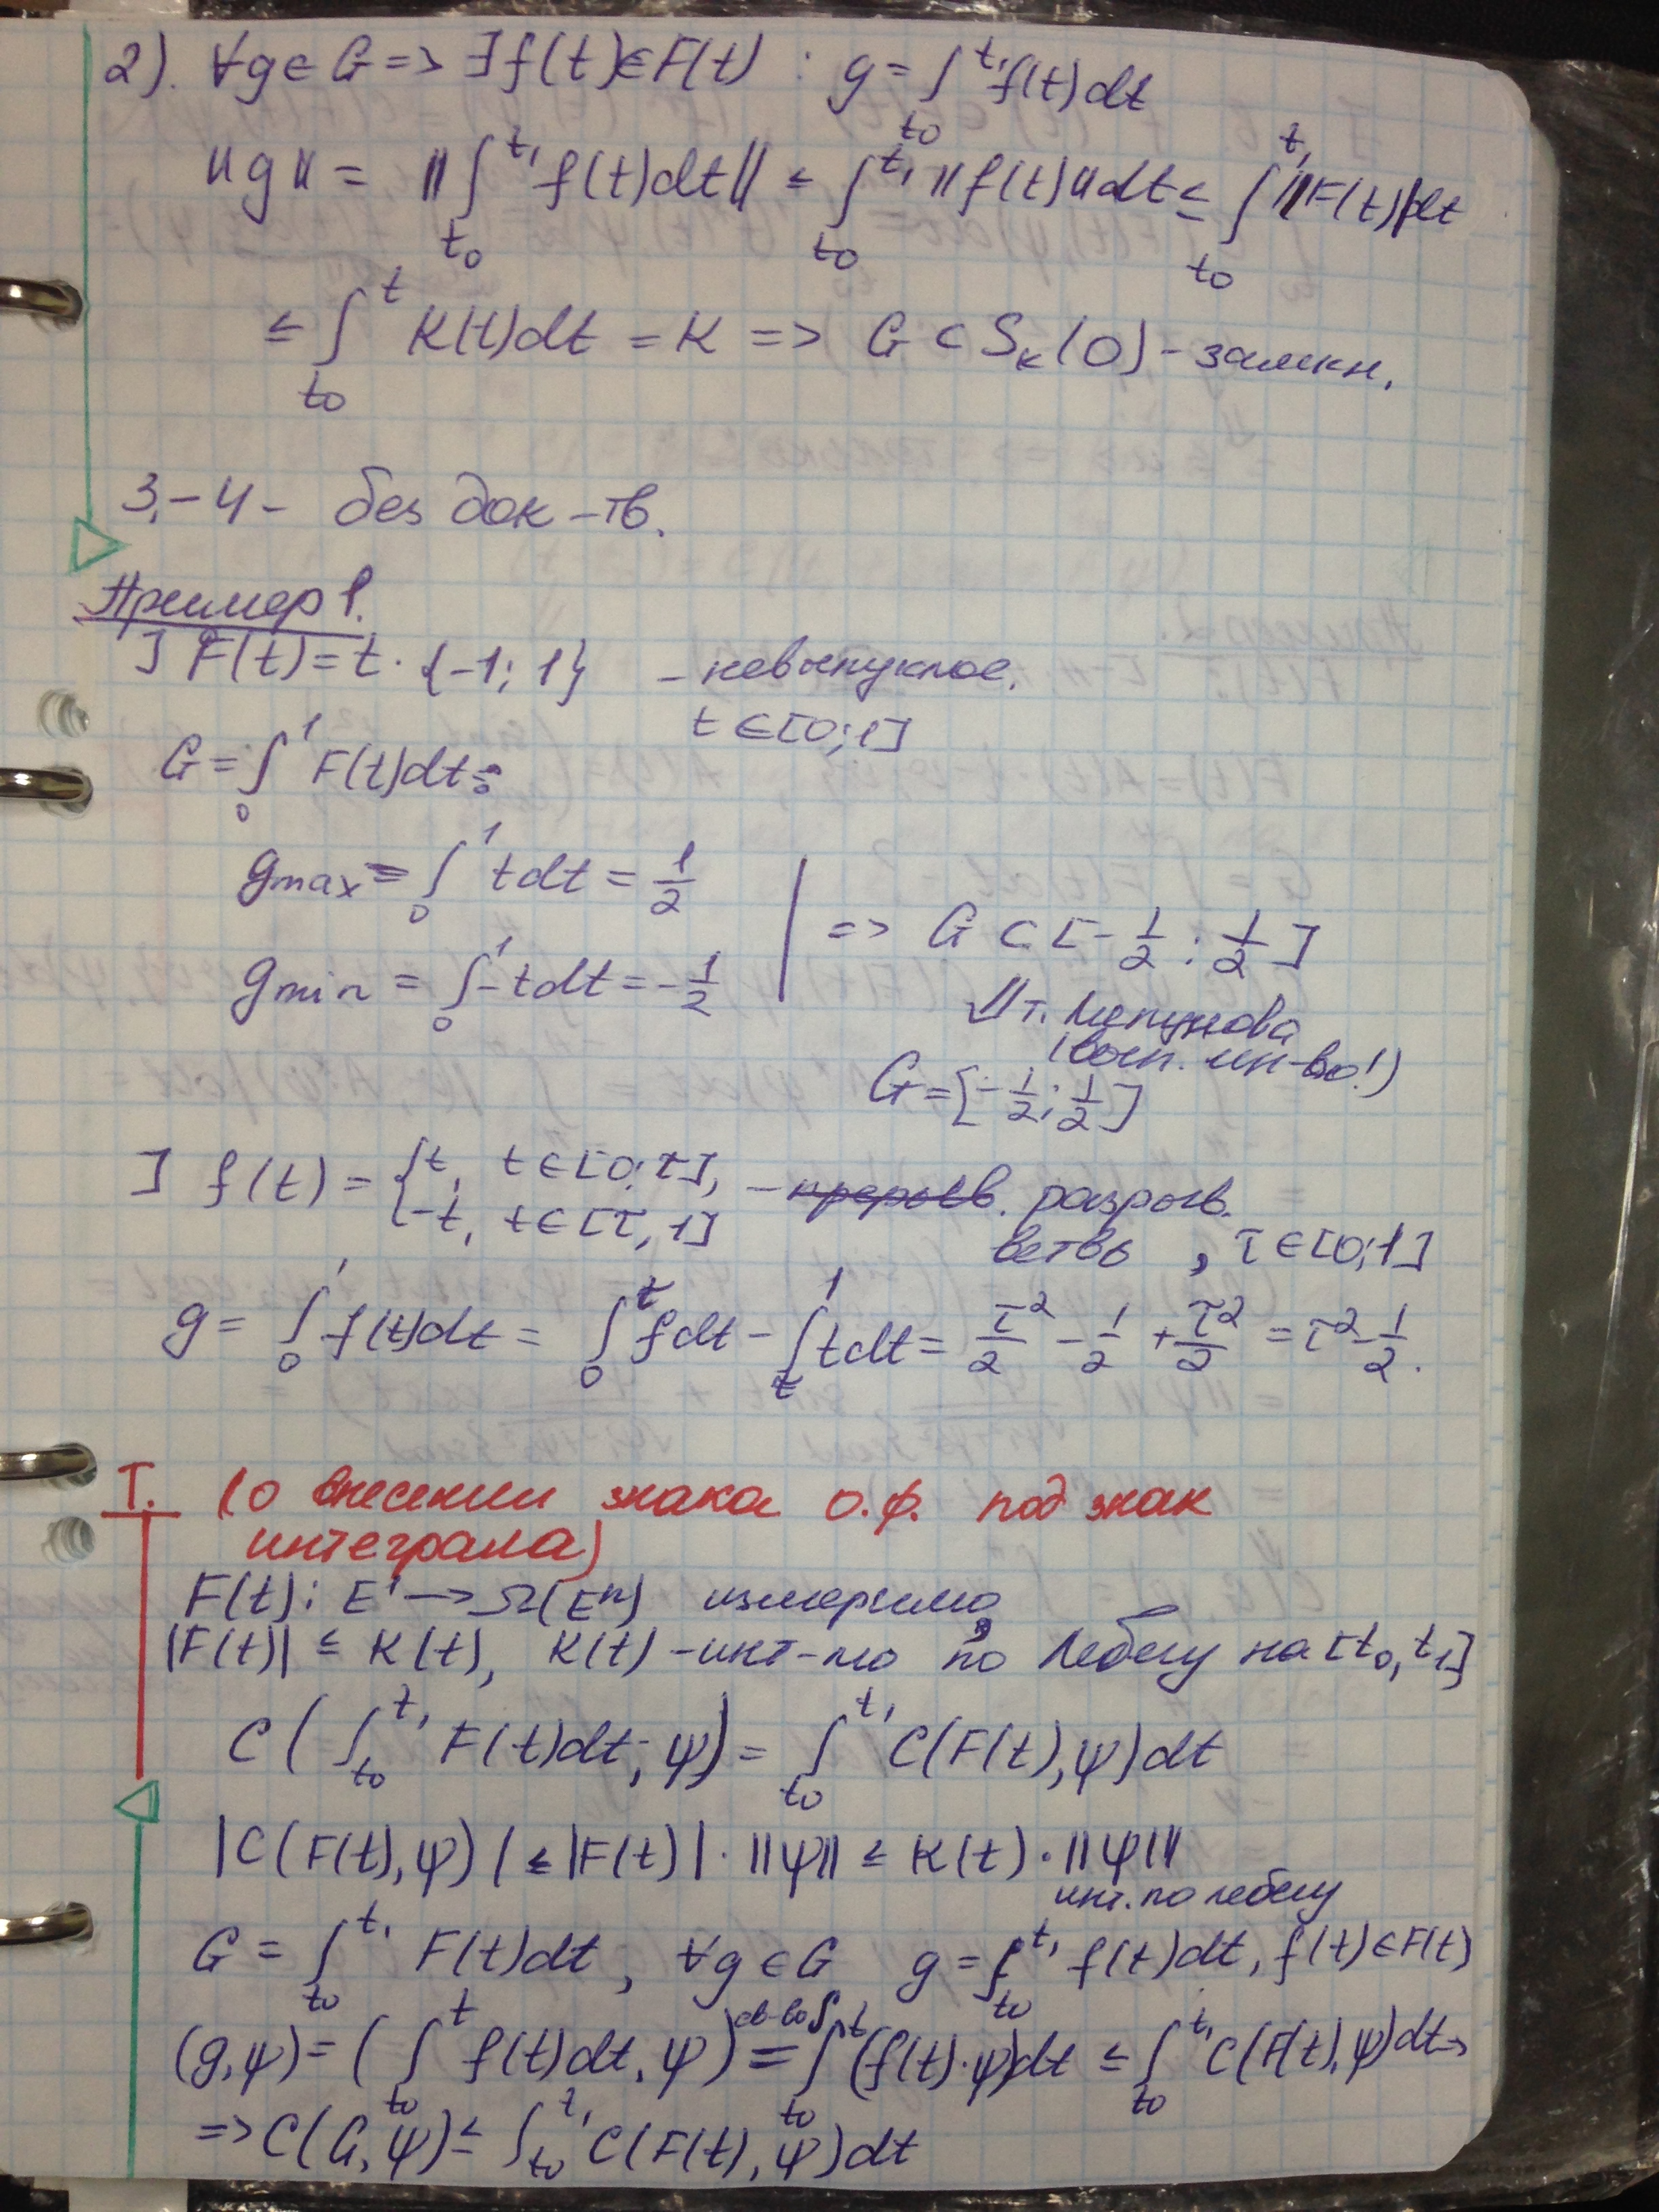 2). ∀g ∈ G => ∃ f(t) ∈ F(t) : g = ∫_{t₀}^{t₁} f(t)dt
||g|| = ||∫_{t₀}^{t₁} f(t)dt|| ≤ ∫_{t₀}^{t₁} ||f(t)||dt ≤ ∫_{t₀}^{t₁} |F(t)|dt
≤ ∫_{t₀}^{t} K(t)dt = K => G ⊂ S_K(0) - замкн.
3,-4 - без док-тв.
Пример 1.
] F(t) = t · {-1; 1} - невыпуклое.
t ∈ [0; 1]
G = ∫_0^1 F(t)dt =
g_max = ∫_0^1 t dt = 1/2
=> G ⊂ [-1/2 ; 1/2]
g_min = ∫_0^1 -t dt = -1/2
⇓ т. Ляпунова
(вып. мн-во!)
G = [-1/2; 1/2]
] f(t) = { t, t ∈ [0; τ], - разрыв.
{ -t, t ∈ [τ, 1] ветвь , τ ∈ [0; 1]
g = ∫_0^1 f(t)dt = ∫_0^τ f dt - ∫_τ^1 t dt = τ²/2 - 1/2 + τ²/2 = τ² - 1/2.
Т. (о внесении знака о.ф. под знак
интеграла)
F(t): E¹ → Ω(Eⁿ) измеримо,
|F(t)| ≤ K(t), K(t) - инт-мо по Лебегу на [t₀, t₁]
C(∫_{t₀}^{t₁} F(t)dt; ψ) = ∫_{t₀}^{t₁} C(F(t), ψ)dt
|C(F(t), ψ)| ≤ |F(t)| · ||ψ|| ≤ K(t) · ||ψ||
инт. по лебегу
G = ∫_{t₀}^{t₁} F(t)dt, ∀g ∈ G g = ∫_{t₀}^{t₁} f(t)dt, f(t) ∈ F(t)
(g, ψ) = (∫_{t₀}^{t} f(t)dt, ψ) =^{св-во ∫} ∫_{t₀}^{t} (f(t)·ψ)dt ≤ ∫_{t₀}^{t₁} C(F(t), ψ)dt =>
=> C(G, ψ) ≤ ∫_{t₀}^{t₁} C(F(t), ψ)dt